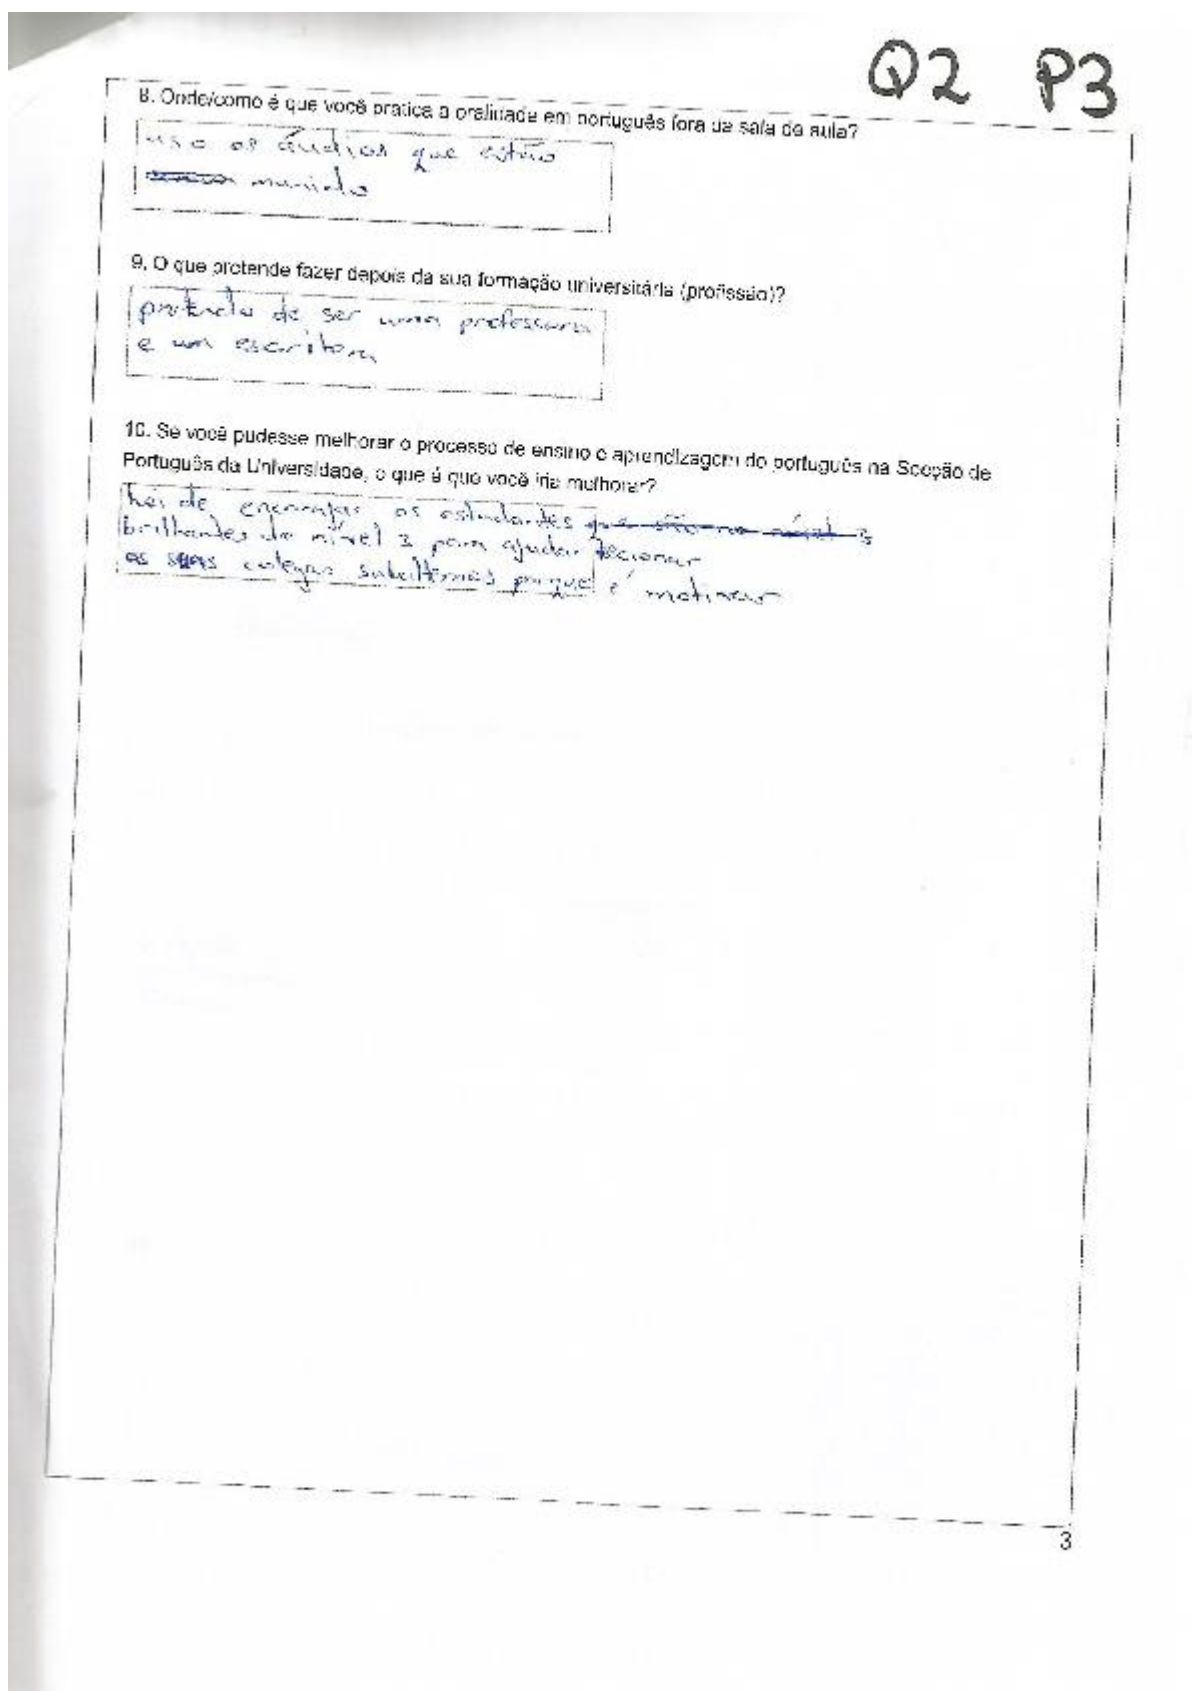 Q2 P3
8. Onde/como é que você pratica a oralidade em português fora da sala de aula?
uso os áudios que estão
muindo
9. O que pretende fazer depois da sua formação universitária (profissão)?
pretendo de ser uma professora
e um escritora
10. Se você pudesse melhorar o processo de ensino e aprendizagem do português na Secção de
Português da Universidade, o que é que você iria melhorar?
hei de encorajar os estudantes que são no nível 3
brilhantes do nível 3 para ajudar lecionar
os seus colegas subalternos porque é motivar
3